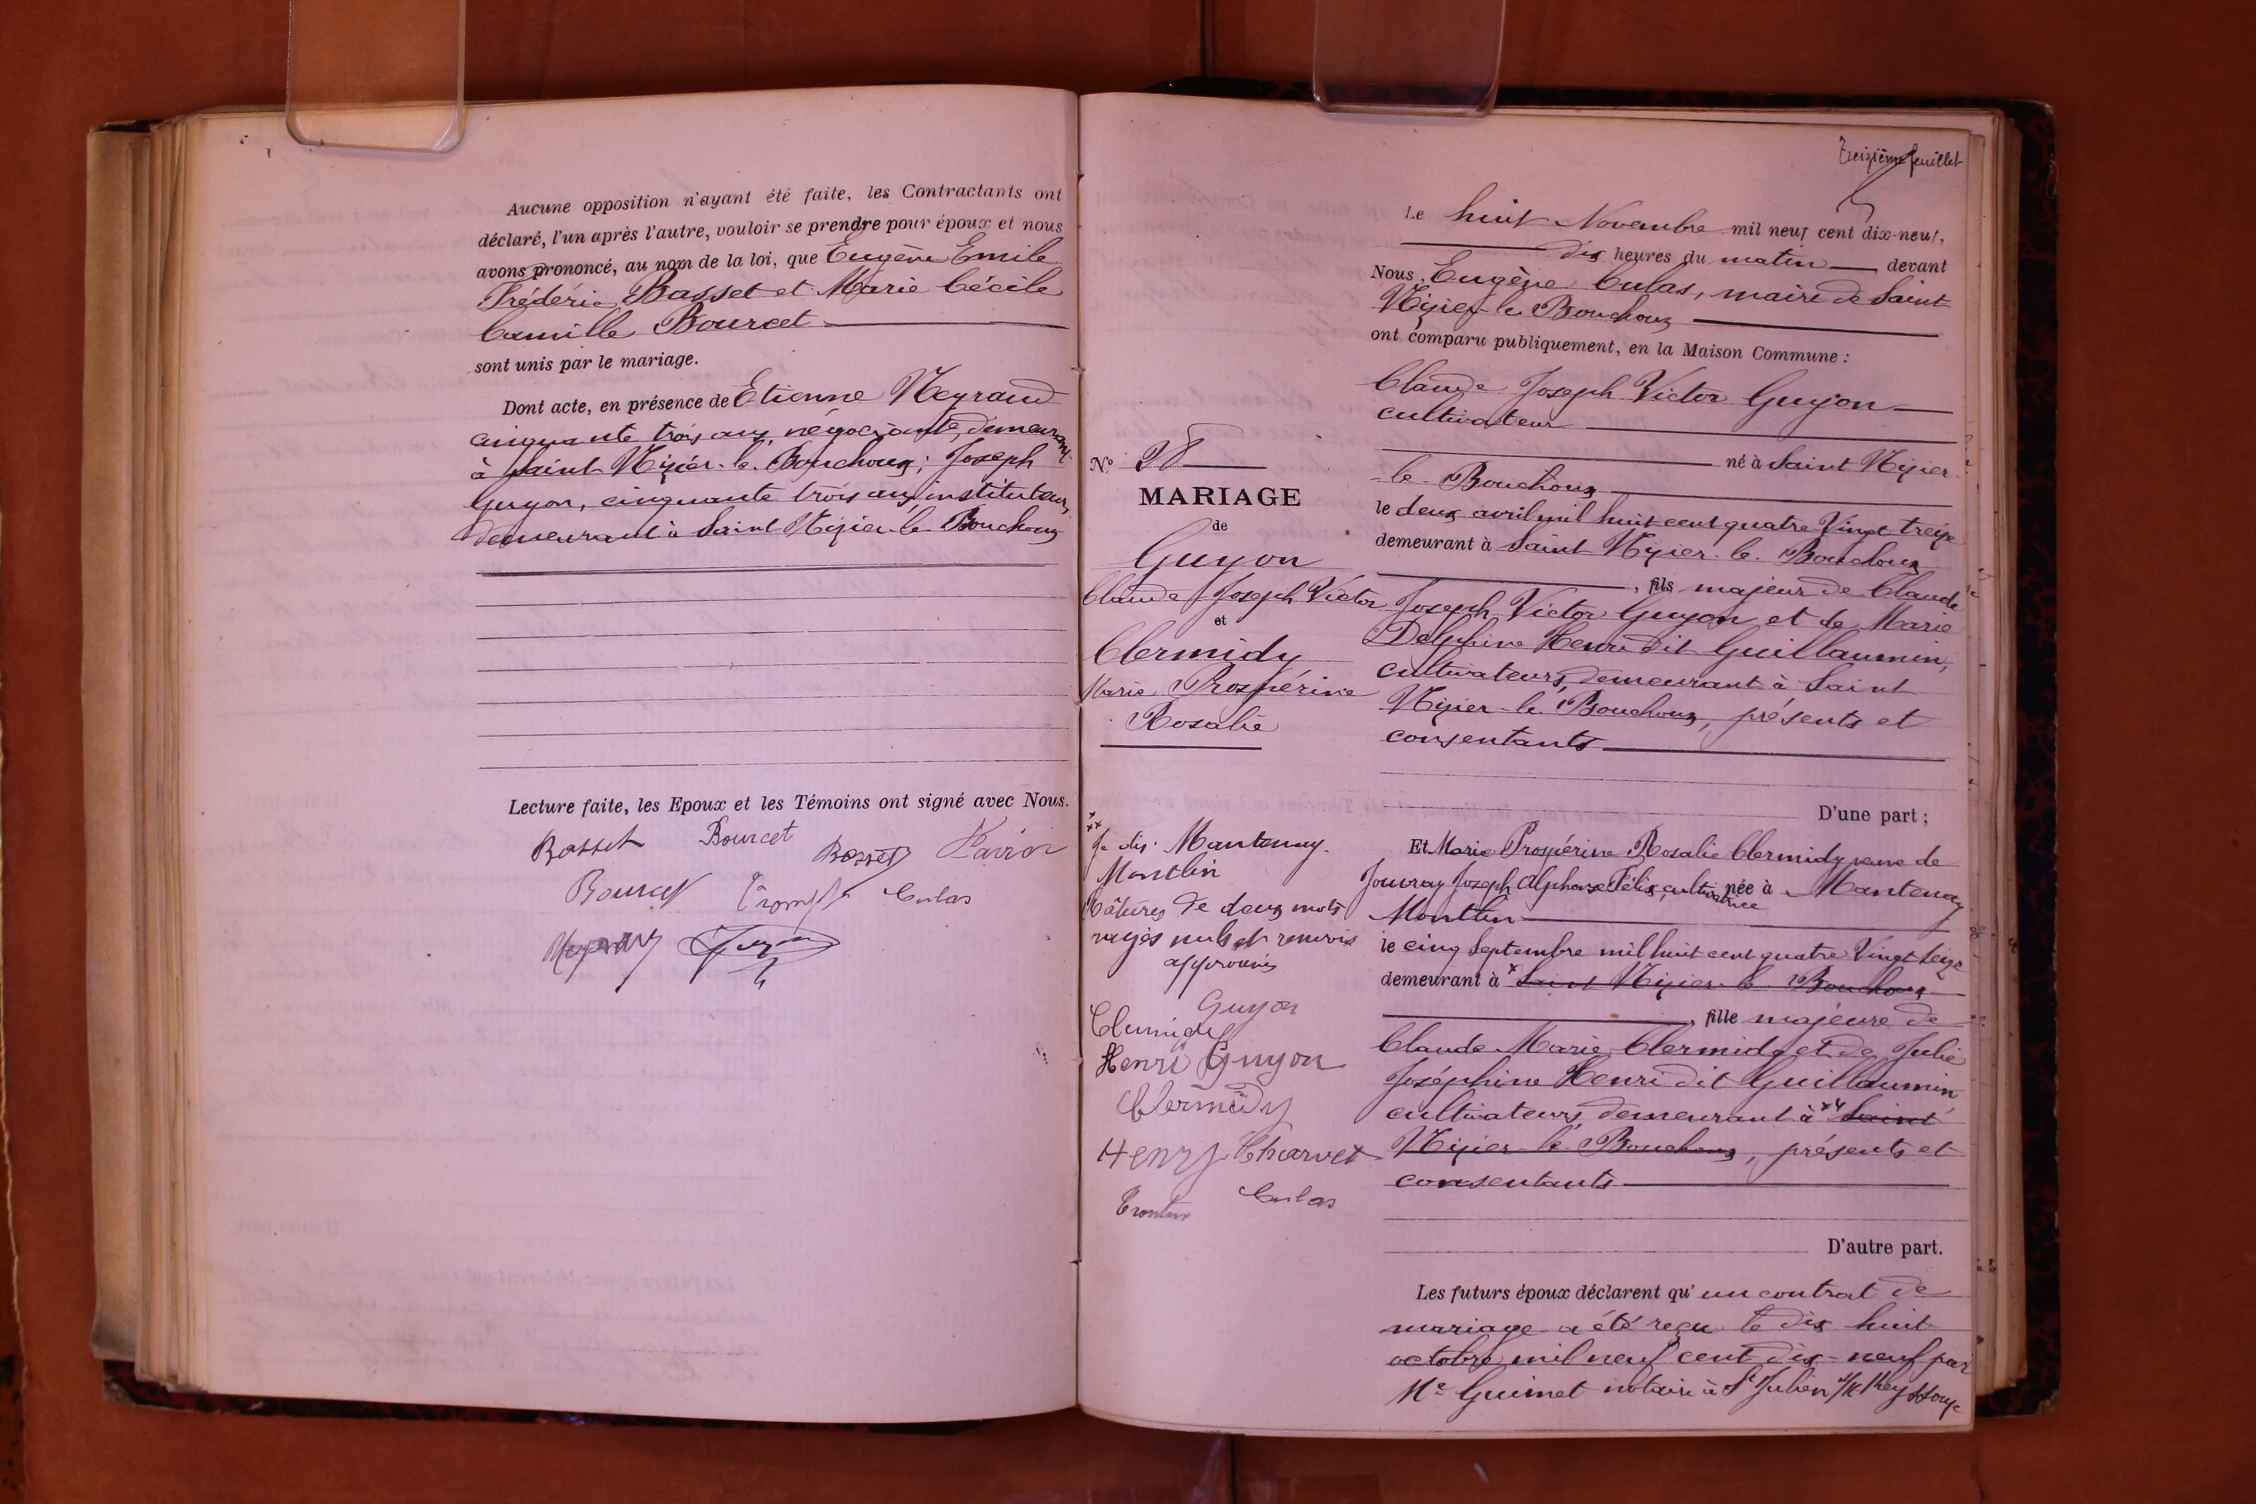 Aucune opposition n'ayant été faite, les Contractants ont
déclaré, l'un après l'autre, vouloir se prendre pour époux et nous
avons prononcé, au nom de la loi, que Eugène Emile
Frédéric Basset et Marie Cécile
Camille Bourcet
sont unis par le mariage.
Dont acte, en présence de Etienne Neyraud
cinquante trois ans, négociante, demeurant
à Saint Nizier-le-Bouchoux; Joseph
Guyon, cinquante trois ans, instituteur,
demeurant à Saint Nizier-le-Bouchoux
Lecture faite, les Epoux et les Témoins ont signé avec Nous.
Basset Bourcet Basset
Bourcet Culas
Neyraud Guyon
Treizième feuillet
Le huit Novembre mil neuf cent dix-neuf,
dix heures du matin devant
Nous Eugène Culas, maire de Saint
Nizier-le-Bouchoux
ont comparu publiquement, en la Maison Commune :
Claude Joseph Victor Guyon
cultivateur
né à Saint Nizier
le-Bouchoux
le deux avril mil huit cent quatre Vingt treize
demeurant à Saint Nizier-le-Bouchoux
, fils majeur de Claude
Joseph Victor Guyon et de Marie
Delphine Henri dit Guillaumin,
cultivateurs, demeurant à Saint
Nizier-le-Bouchoux, présents et
consentants
D'une part ;
Et Marie Prospérine Rosalie Clermidy veuve de
Jouvray Joseph Alphonse Félix, cultivatrice née à Mantenay
Montlin
le cinq Septembre mil huit cent quatre Vingt seize
demeurant à x Saint Nizier-le-Bouchoux
, fille majeure de
Claude Marie Clermidy et de Julie
Joséphine Henri dit Guillaumin
cultivateurs, demeurant à xx Saint
Nizier-le-Bouchoux, présents et
consentants
D'autre part.
Les futurs époux déclarent qu'un contrat de
mariage a été reçu le dix huit
octobre mil neuf cent dix-neuf par
Me Guimet notaire à St Julien s/R Reyssouze
N° 28
MARIAGE
de
Guyon
Claude Joseph Victor
et
Clermidy
Marie Prospérine
Rosalie
Je dis: Mantenay-
Montlin
de deux mots
rayés nuls et renvois
approuvés
Guyon
Clermidy
Henri Guyon
Clermidy
Henry Charvet
Culas